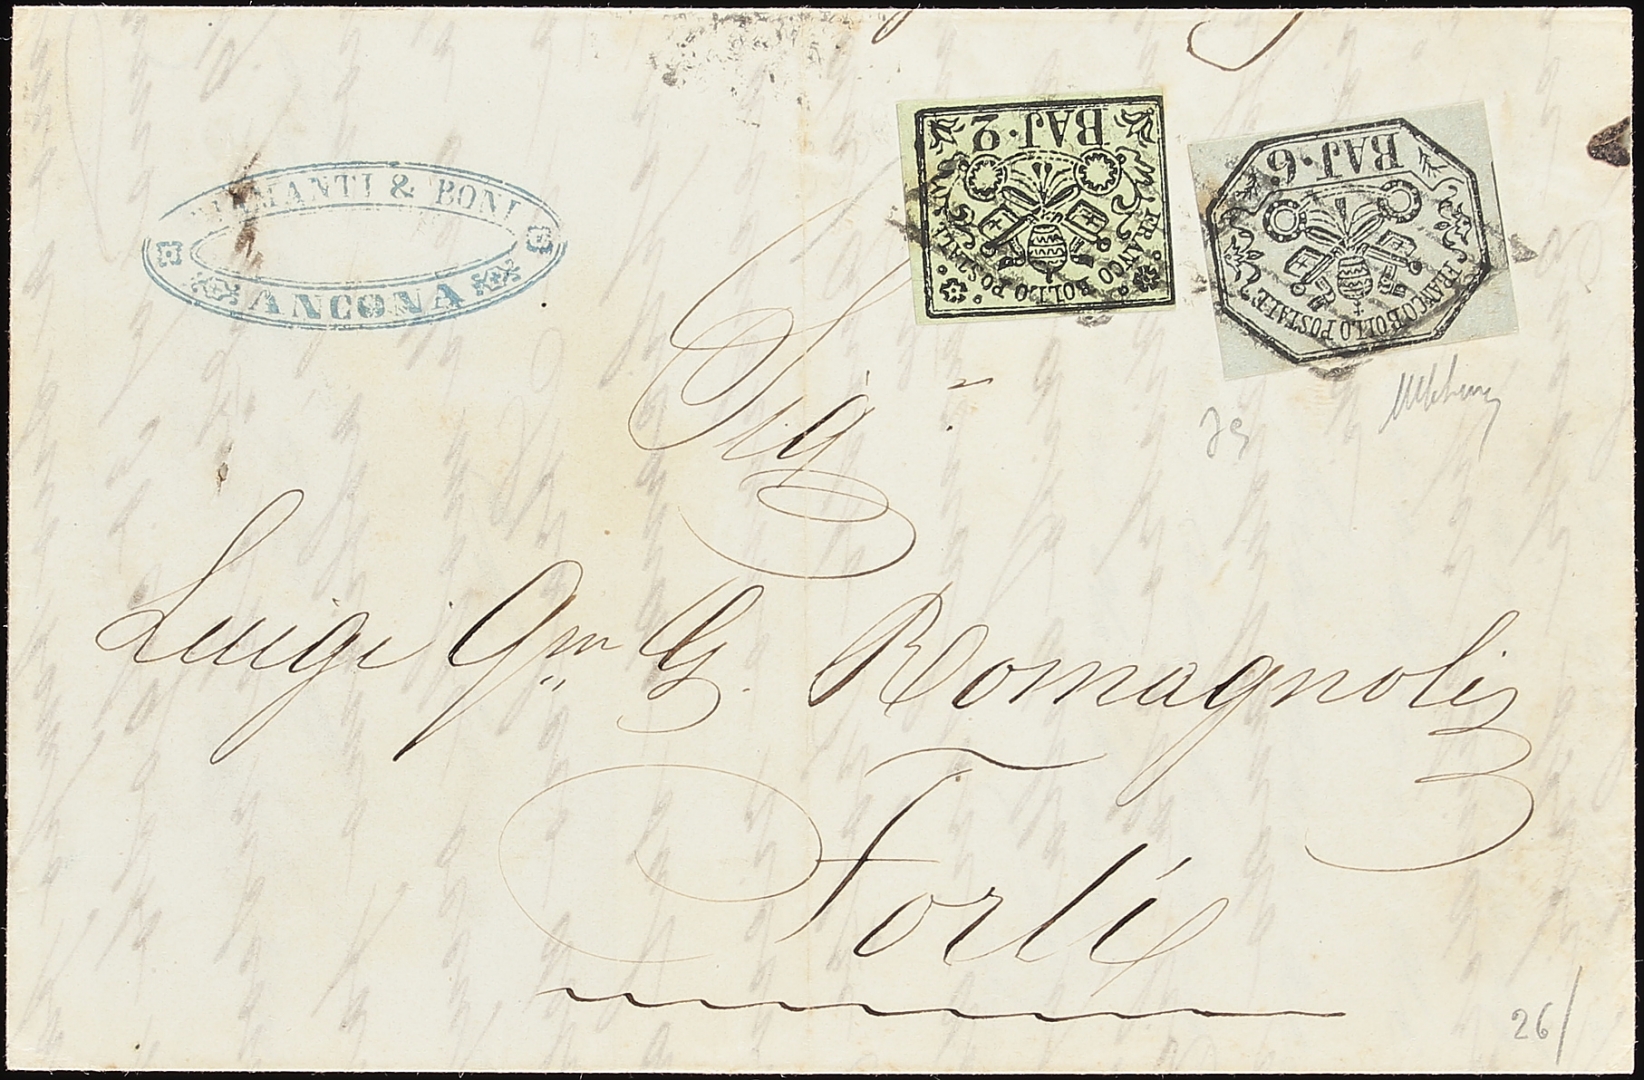 DIAMANTI & BONI
ANCONA
BAJ·2
FRANCO BOLLO POSTALE
BAJ·6
FRANCO BOLLO POSTALE
Sig
Luigi Qm G. Romagnoli
Forlì
26/